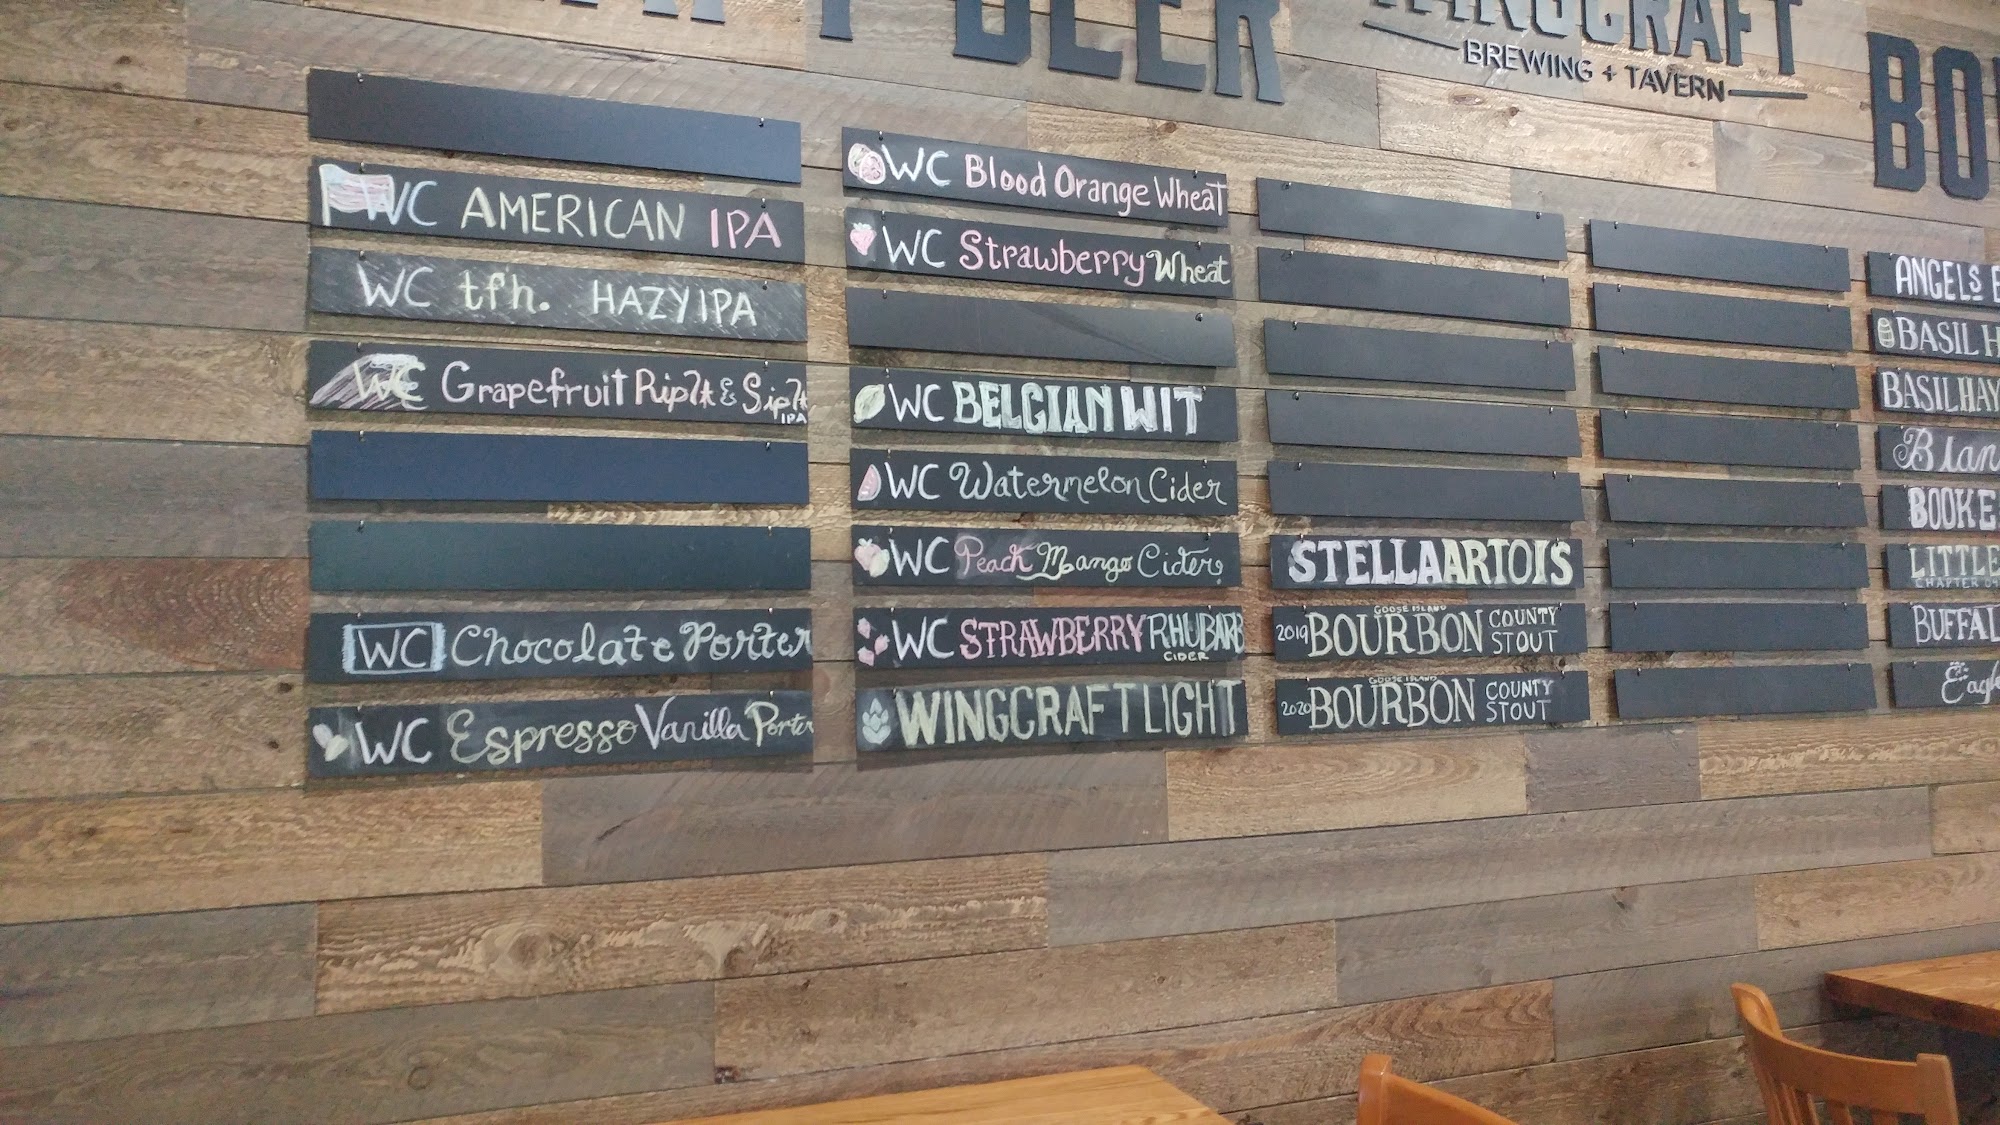 BEER
WINGCRAFT
BREWING + TAVERN
WC AMERICAN IPA
WC tfh. HAZY IPA
WC Grapefruit Rip It & Sip It
IPA
WC Chocolate Porter
WC Espresso Vanilla Porter
WC Blood Orange Wheat
WC Strawberry Wheat
WC BELGIAN WIT
WC Watermelon Cider
WC Peach Mango Cider
WC STRAWBERRY RHUBARB
CIDER
WINGCRAFT LIGHT
STELLA ARTOIS
GOOSE ISLAND
2019 BOURBON COUNTY
STOUT
GOOSE ISLAND
2020 BOURBON COUNTY
STOUT
BO
ANGELS E
BASIL H
BASIL HAY
Blan
BOOKE
LITTLE
CHAPTER
BUFFAL
Eagle